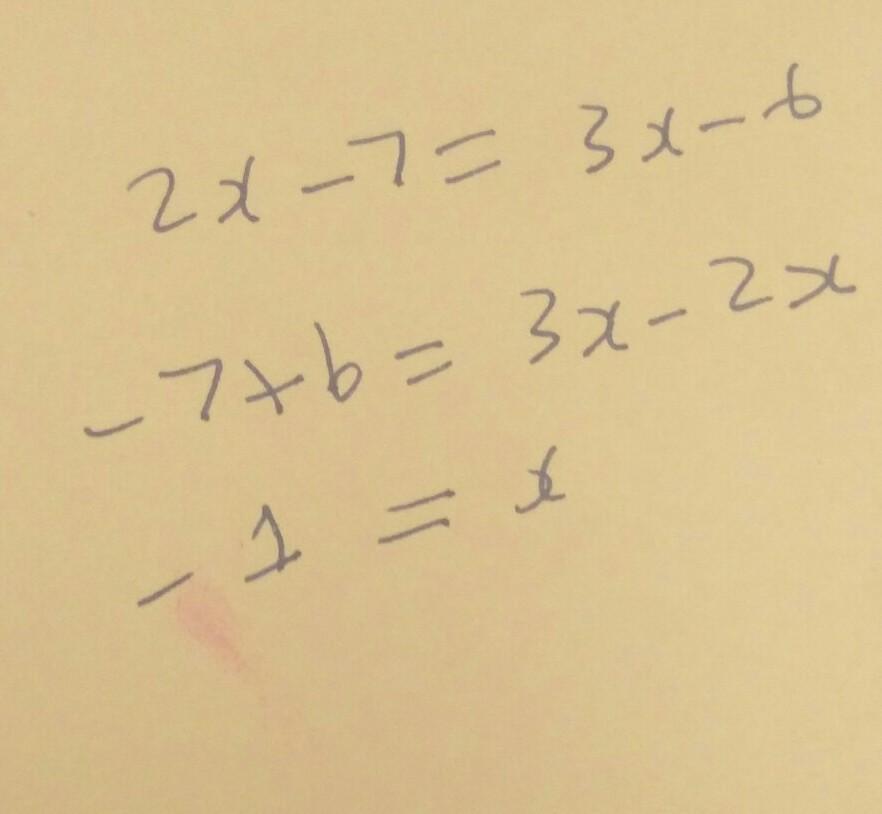 2x - 7 = 3x - 6
- 7 + 6 = 3x - 2x
- 1 = x